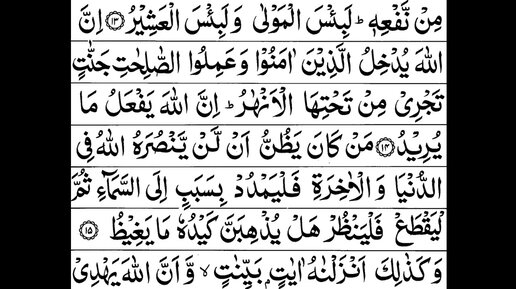 مِنْ نَّفْعِهٖ ؕ لَبِئْسَ الْمَوْلٰی وَلَبِئْسَ الْعَشِیْرُ ۝۱۳ اِنَّ
اللهَ یُدْخِلُ الَّذِیْنَ اٰمَنُوْا وَعَمِلُوا الصّٰلِحٰتِ جَنّٰتٍ
تَجْرِیْ مِنْ تَحْتِهَا الْاَنْهٰرُ ؕ اِنَّ اللهَ یَفْعَلُ مَا
یُرِیْدُ ۝۱۴ مَنْ كَانَ یَظُنُّ اَنْ لَّنْ یَّنْصُرَهُ اللهُ فِی
الدُّنْیَا وَالْاٰخِرَةِ فَلْیَمْدُدْ بِسَبَبٍ اِلَی السَّمَآءِ ثُمَّ
لْیَقْطَعْ فَلْیَنْظُرْ هَلْ یُذْهِبَنَّ كَیْدُهٗ مَا یَغِیْظُ ۝۱۵
وَكَذٰلِكَ اَنْزَلْنٰهُ اٰیٰتٍۭ بَیِّنٰتٍ ۙ وَّاَنَّ اللهَ یَهْدِیْ